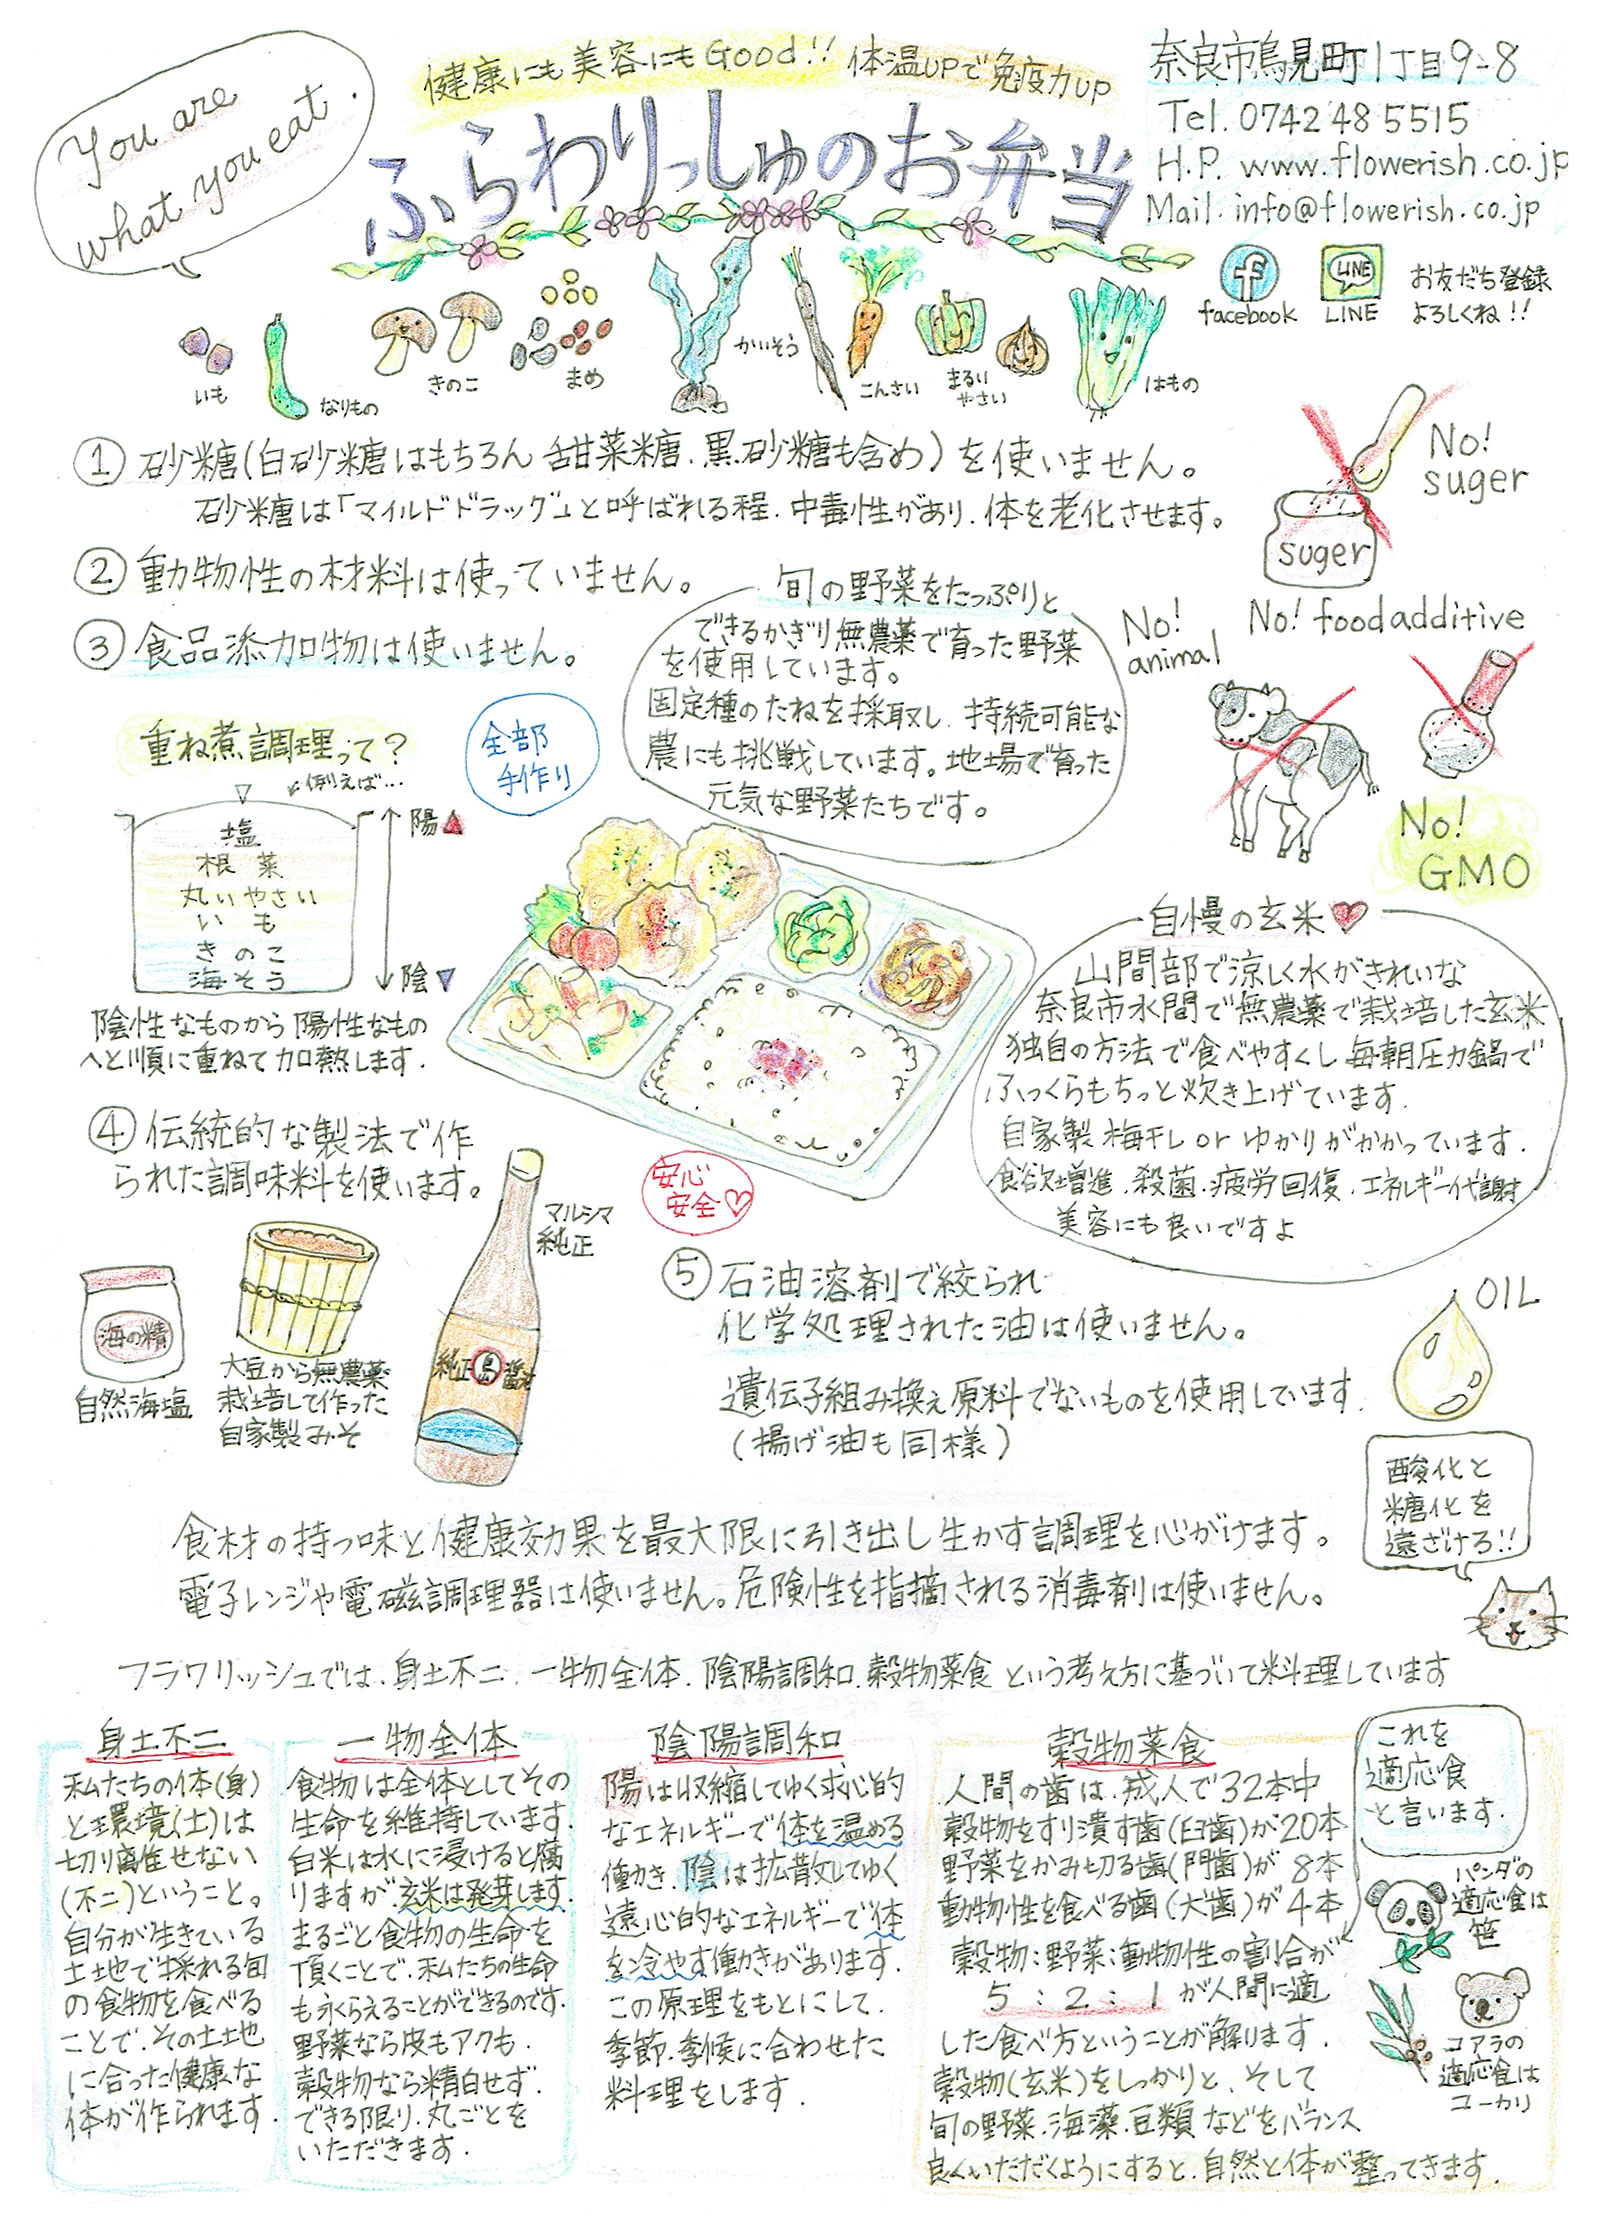 You are
what you eat.
健康にも美容にもGood!! 体温UPで免疫力UP
ふらわりっしゅのお弁当
奈良市鳥見町1丁目9-8
Tel. 0742 48 5515
H.P. www.flowerish.co.jp
Mail. info@flowerish.co.jp
facebook
LINE
LINE
お友だち登録
よろしくね!!
いも
なりもの
きのこ
まめ
かいそう
こんさい
まるい
やさい
はもの
① 砂糖(白砂糖はもちろん 甜菜糖、黒砂糖も含め)を使いません。
砂糖は「マイルドドラッグ」と呼ばれる程、中毒性があり、体を老化させます。
② 動物性の材料は使っていません。
③ 食品添加物は使いません。
No!
suger
suger
No!
animal
No! foodadditive
No!
GMO
旬の野菜をたっぷりと
できるかぎり無農薬で育った野菜
を使用しています。
固定種のたねを採取し、持続可能な
農にも挑戦しています。地場で育った
元気な野菜たちです。
全部
手作り
重ね煮調理って?
例えば…
塩
根菜
丸いやさい
いも
きのこ
海そう
陽▲
陰▼
陰性なものから陽性なもの
へと順に重ねて加熱します.
自慢の玄米♥
山間部で涼しく水がきれいな
奈良市水間で無農薬で栽培した玄米
独自の方法で食べやすくし毎朝圧力鍋で
ふっくらもちっと炊き上げています.
自家製 梅干し or ゆかりがかかっています.
食欲増進、殺菌、疲労回復、エネルギー代謝
美容にも良いですよ
安心
安全♡
④ 伝統的な製法で作
られた調味料を使います。
海の精
自然海塩
大豆から無農薬
栽培して作った
自家製みそ
マルシマ
純正
純正 島 醤油
⑤ 石油溶剤で絞られ
化学処理された油は使いません。
遺伝子組み換え原料でないものを使用しています.
(揚げ油も同様)
OIL
酸化と
糖化を
遠ざけろ!!
食材の持つ味と健康効果を最大限に引き出し生かす調理を心がけます。
電子レンジや電磁調理器は使いません。危険性を指摘される消毒剤は使いません。
フラワリッシュでは、身土不二、一物全体、陰陽調和、穀物菜食 という考え方に基づいて料理しています
身土不二
私たちの体(身)
と環境(土)は
切り離せない
(不二)ということ。
自分が生きている
土地で採れる旬
の食物を食べる
ことで、その土地
に合った健康な
体が作られます.
一物全体
食物は全体としてその
生命を維持しています.
白米は水に浸けると腐
りますが、玄米は発芽します.
まるごと食物の生命を
頂くことで、私たちの生命
も永らえることができるのです.
野菜なら皮もアクも、
穀物なら精白せず、
できる限り、丸ごとを
いただきます.
陰陽調和
陽は収縮してゆく求心的
なエネルギーで体を温める
働き、陰は拡散してゆく
遠心的なエネルギーで体
を冷やす働きがあります.
この原理をもとにして、
季節、季候に合わせた
料理をします.
穀物菜食
人間の歯は、成人で32本中
穀物をすり潰す歯(臼歯)が20本
野菜をかみ切る歯(門歯)が 8本
動物性を食べる歯(犬歯)が 4本
穀物:野菜:動物性の割合が
5:2:1 が人間に適
した食べ方ということが解ります.
穀物(玄米)をしっかりと、そして
旬の野菜、海藻、豆類などをバランス
良くいただくようにすると、自然と体が整ってきます.
これを
適応食
と言います.
パンダの
適応食は
笹
コアラの
適応食は
ユーカリ